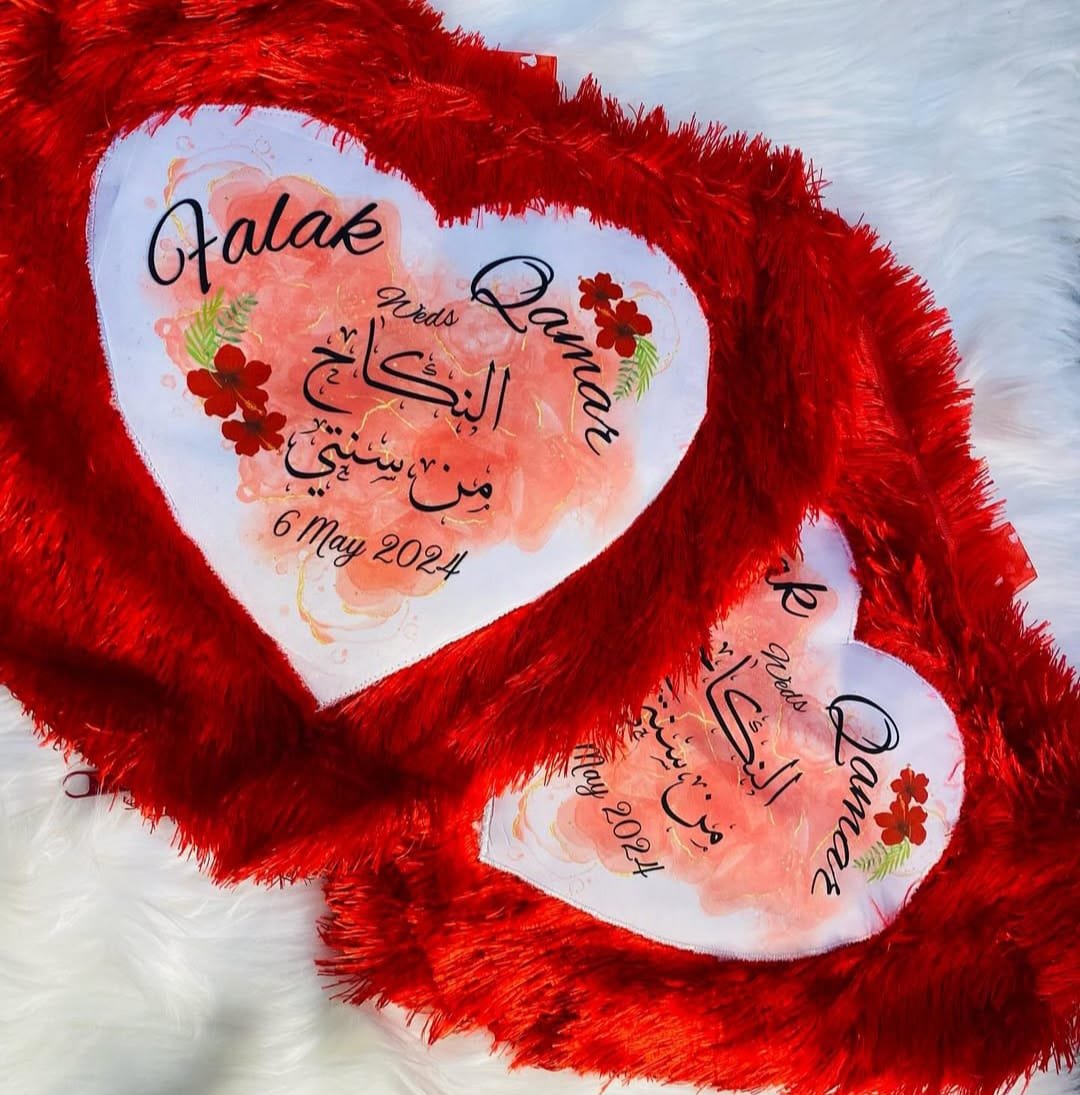 Falak
Weds
Qamar
النكاح
من سنتي
6 May 2024
k
Weds
Qamar
النكاح
من سنتي
May 2024